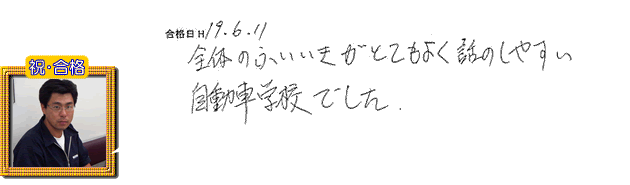 合格日 H19.6.11
全体のふいいきがとてもよく話のしやすい
祝・合格
自動車学校でした.